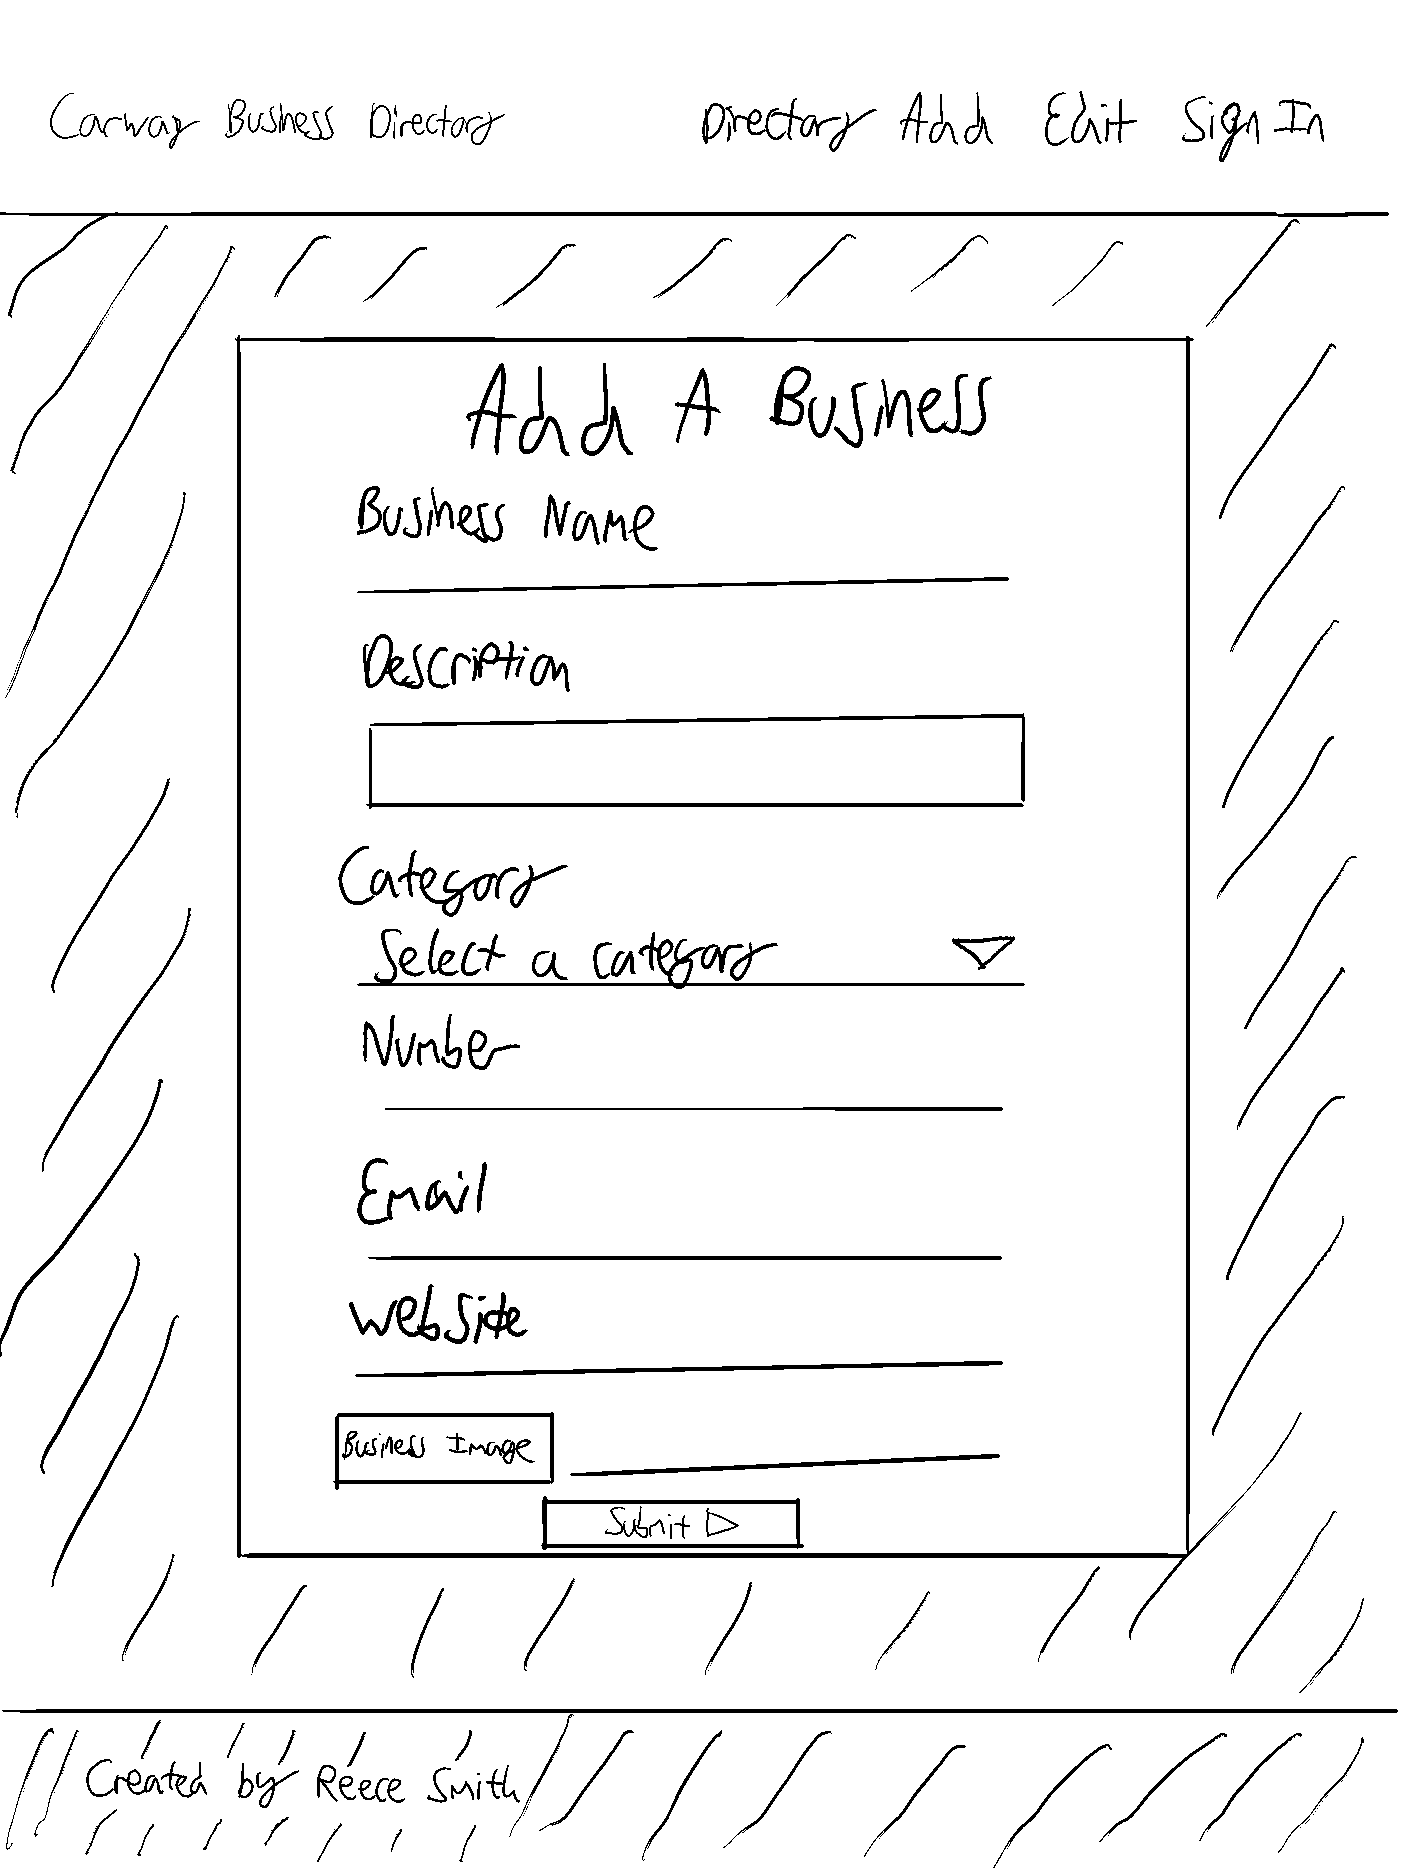 Carway Business Directory Directory Add Edit Sign In
Add A Business
Business Name
Description
Category
Select a category
Number
Email
Website
Business Image
Submit
Created by Reece Smith